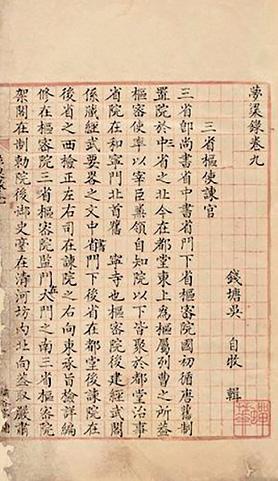 夢粱錄卷九
錢塘吳 自牧 輯
三省樞使諫官
三省卽尚書省中書省門下省樞密院國初循唐舊制
置院於中三省之北今在都堂東上為樞屬列曹之所蓋
樞密使率以宰臣兼領自知院以下皆聚於都堂治事
省院在和寧門北首舊 寧寺也樞密院後建經武閣
係藏經武要畧之文中書門下後省在都堂後諫院在
後省之西檢正左右司在諫院之右向東承旨檢詳編
修在樞密院三省樞密院監門在大門之南三省樞密院
架閣在制勅院後御史臺在清河坊內北向蓋取嚴肅